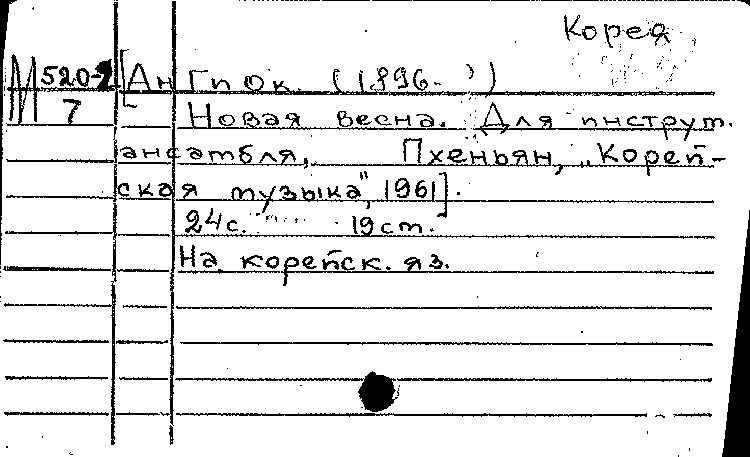 Корея
М 520-2 [Ан Гиок. (1896- )
7 Новая весна. Для инструм.
ансамбля, Пхеньян, "Корей-
ская музыка", 1961].
24с. 19см.
На корейск. яз.